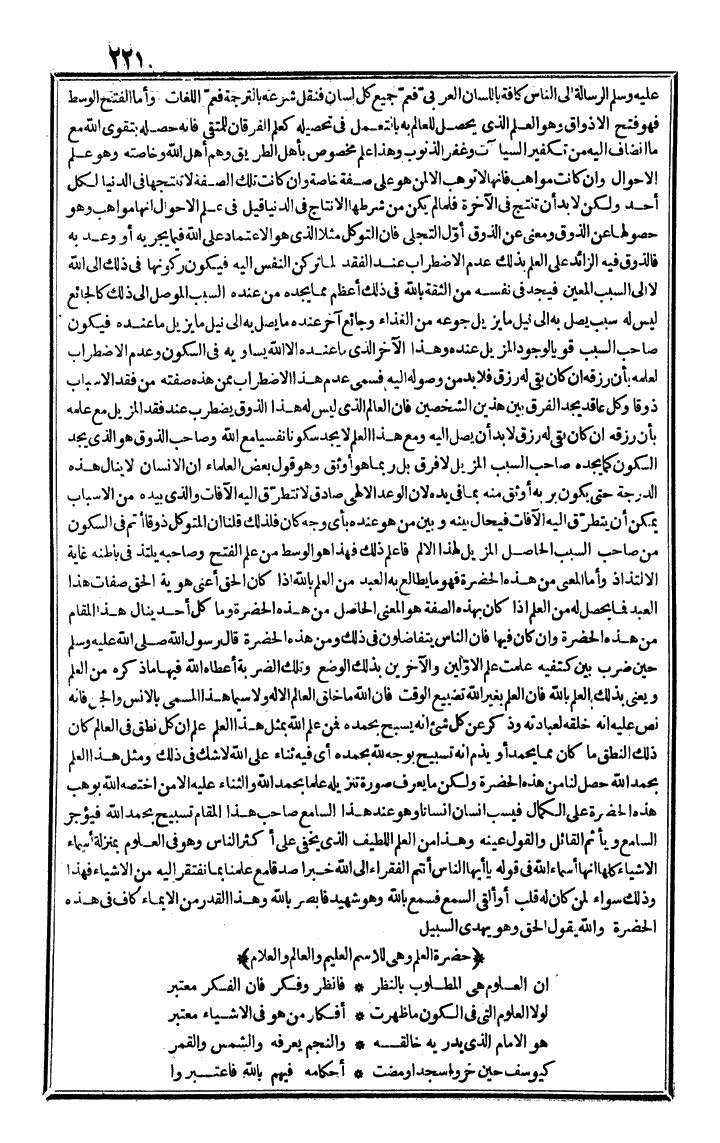 ٢٢١
عليه وسلم الرسالة الى الناس كافة باللسان العربى فعم جميع كل لسان فنقل شرعه بالترجمة فعم اللغات وأما الفتح الوسط
فهو فتح الاذواق وهو العلم الذى يحصل للعالم به بالتعمل فى تحصيله كعلم الفرقان للمتقى فانه حصله بتقوى الله مع
ما انضاف اليه من تكفير السيآت وغفر الذنوب وهذا علم مخصوص بأهل الطريق وهم أهل الله وخاصته وهو علم
الاحوال وان كانت مواهب فانها لا توهب الا لمن هو على صفة خاصة وان كانت تلك الصفة لا تنتجها فى الدنيا لكل
أحد ولكن لا بد أن تنتج فى الآخرة فلما لم يكن من شرطها الانتاج فى الدنيا قيل فى علم الاحوال انها مواهب وهو
حصولها عن الذوق ومعنى عن الذوق أول التجلى فان التوكل مثلا الذى هو الاعتماد على الله فيما يجريه أو وعد به
فالذوق فيه الزائد على العلم بذلك عدم الاضطراب عند الفقد لما تركن النفس اليه فيكون ركونها فى ذلك الى الله
لا الى السبب المعين فيجد فى نفسه من الثقة بالله فى ذلك أعظم مما يجده من عنده السبب الموصل الى ذلك كالجائع
ليس له سبب يصل به الى نيل ما يزيل جوعه من الغذاء وجائع آخر عنده ما يصل به الى نيل ما يزيل ما عنده فيكون
صاحب السبب قويا لوجود المزيل عنده وهذا الآخر الذى ما عنده الا الله يساويه فى السكون وعدم الاضطراب
لعلمه بأن رزقه ان كان بقى له رزق فلا بد من وصوله اليه فسمى عدم هذا الاضطراب ممن هذه صفته من فقد الاسباب
ذوقا وكل عاقد يجد الفرق بين هذين الشخصين فان العالم الذى ليس له هذا الذوق يضطرب عند فقد المزيل مع علمه
بأن رزقه ان كان بقى له رزق لا بد أن يصل اليه ومع هذا العلم لا يجد سكونا نفسيا مع الله وصاحب الذوق هو الذى يجد
السكون كما يجده صاحب السبب المزيل لا فرق بل ربما هو أوثق وهو قول بعض العلماء ان الانسان لا ينال هذه
الدرجة حتى يكون بربه أوثق منه بما فى يده لان الوعد الالهى صادق لا تتطرق اليه الآفات والذى بيده من الاسباب
يمكن أن يتطرق اليه الآفات فيحال بينه وبين من هو عنده بأى وجه كان فلذلك قلنا ان المتوكل ذوقا أتم فى السكون
من صاحب السبب الحاصل المزيل لهذا الالم فاعلم ذلك فهذا هو الوسط من علم الفتح وصاحبه يلتذ فى باطنه غاية
الالتذاذ وأما المعنى من هذه الحضرة فهو ما يطالع به العبد من العلم بالله اذا كان الحق أعنى هوية الحق صفات هذا
العبد فما يحصل له من العلم اذا كان بهذه الصفة هو المعنى الحاصل من هذه الحضرة وما كل أحد ينال هذا المقام
من هذه الحضرة وان كان فيها فان الناس يتفاضلون فى ذلك ومن هذه الحضرة قال رسول الله صلى الله عليه وسلم
حين ضرب بين كتفيه علمت علم الاولين والآخرين بذلك الوضع وتلك الضربة أعطاه الله فيها ما ذكره من العلم
ويعنى بذلك العلم بالله فان العلم بغير الله تضييع الوقت فان الله ما خلق العالم الا له ولا سيما هذا المسمى بالانس والجن فانه
نص عليه انه خلقه لعبادته وذكر عن كل شئ انه يسبح بحمده فمن علم الله بمثل هذا العلم علم ان كل نطق فى العالم كان
ذلك النطق ما كان مما يحمد أو يذم انه تسبيح بوجه لله بحمده أى فيه ثناء على الله لا شك فى ذلك ومثل هذا العلم
بحمد الله حصل لنا من هذه الحضرة ولكن ما يعرف صورة تنزيله علما بحمد الله والثناء عليه الا من اختصه الله بوهب
هذه الحضرة على الكمال فيسب انسان انسانا وهو عند هذا السامع صاحب هذا المقام تسبيح بحمد الله فيؤجر
السامع ويأثم القائل والقول عينه وهذا من العلم اللطيف الذى يخفى على أكثر الناس وهو فى العلوم بمنزلة أسماء
الاشياء كلها انها أسماء الله فى قوله يا أيها الناس أنتم الفقراء الى الله خبرا صدقا مع علمنا بما نفتقر اليه من الاشياء فهذا
وذلك سواء لمن كان له قلب أو ألقى السمع فسمع بالله وهو شهيد فابصر بالله وهذا القدر من الايماء كاف فى هذه
الحضرة والله يقول الحق وهو يهدى السبيل
﴿حضرة العلم وهى للاسم العليم والعالم والعلام﴾
ان العلوم هى المطلوب بالنظر * فانظر وفكر فان الفكر معتبر
لولا العلوم التى فى الكون ما ظهرت * أفكار من هو فى الاشياء معتبر
هو الامام الذى يدريه خالقه * والنجم يعرفه والشمس والقمر
كيوسف حين خروا سجدا ومضت * أحكامه فيهم بالله فاعتبروا